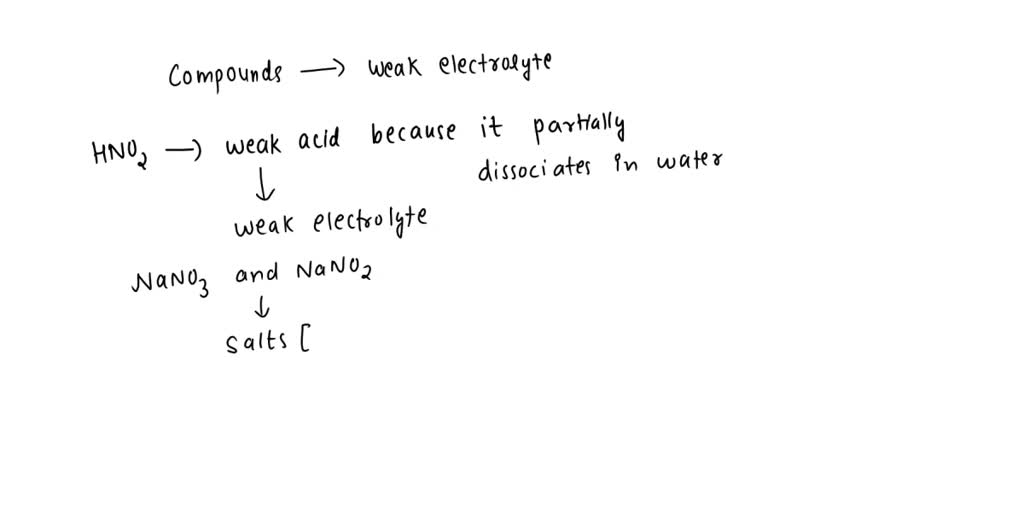 Compounds → weak electrolyte
HNO₂ → weak acid because it partially
dissociates in water
↓
weak electrolyte
NaNO₃ and NaNO₂
↓
salts [